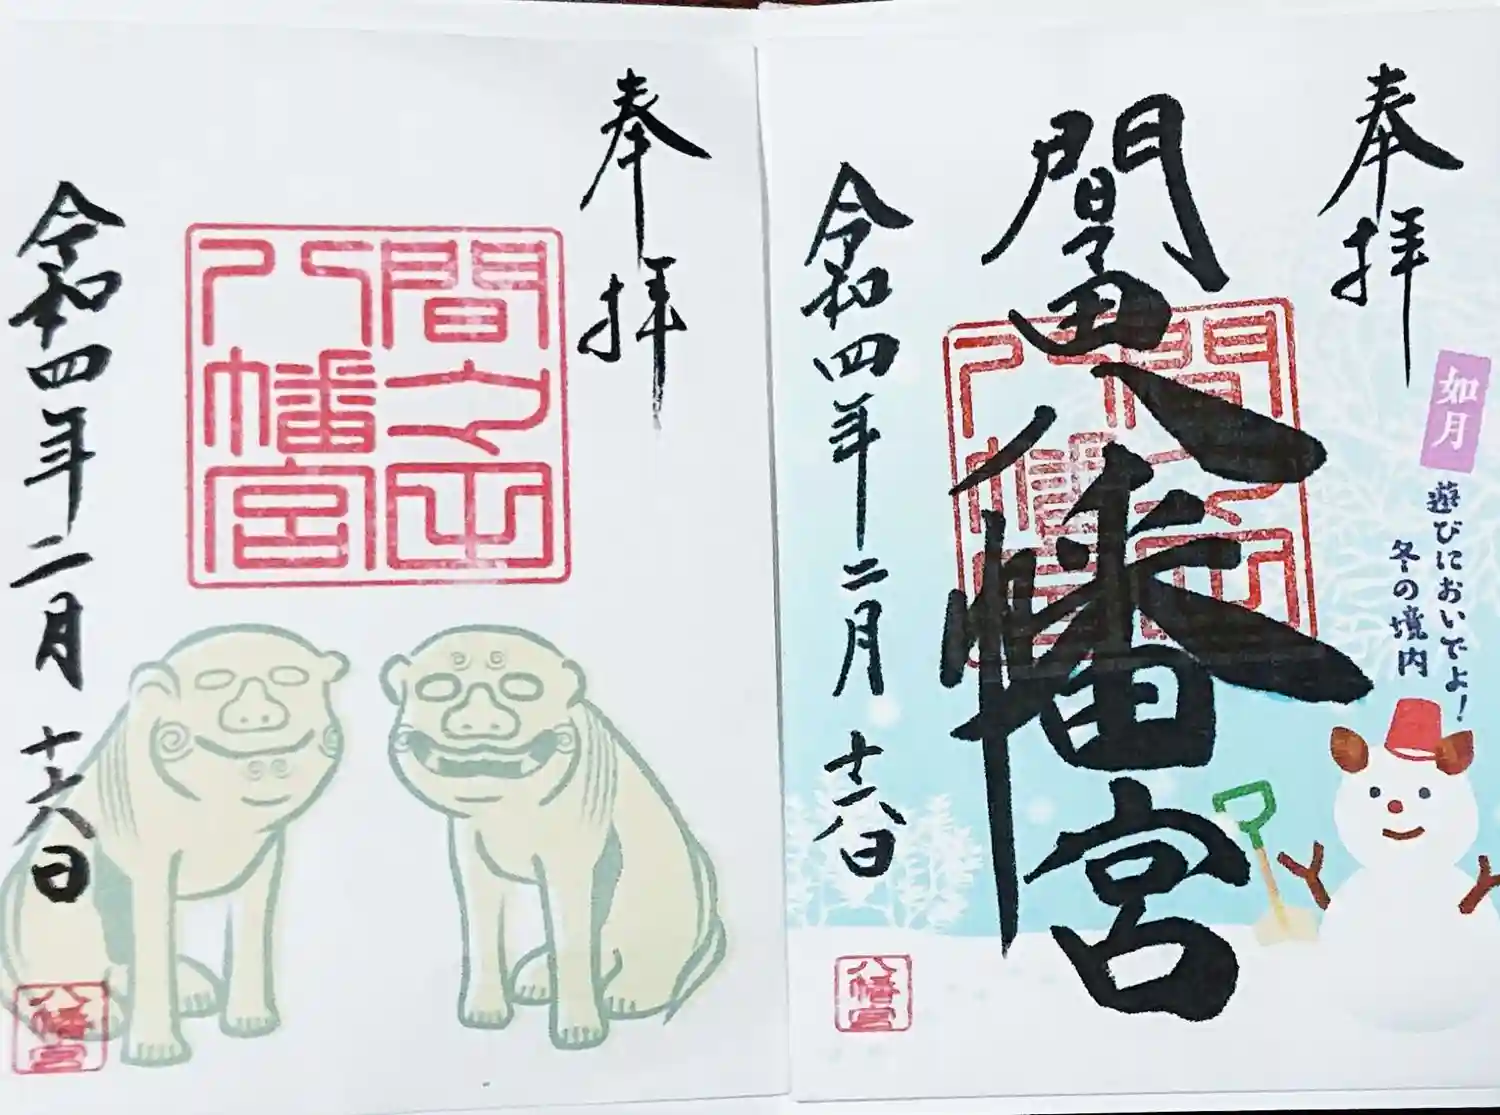 奉拝
如月
遊びにおいでよ!
冬の境内
間々田八幡宮
間之田
八幡宮
令和四年二月十六日
八幡宮
奉拝
間之田
八幡宮
令和四年二月十六日
八幡宮